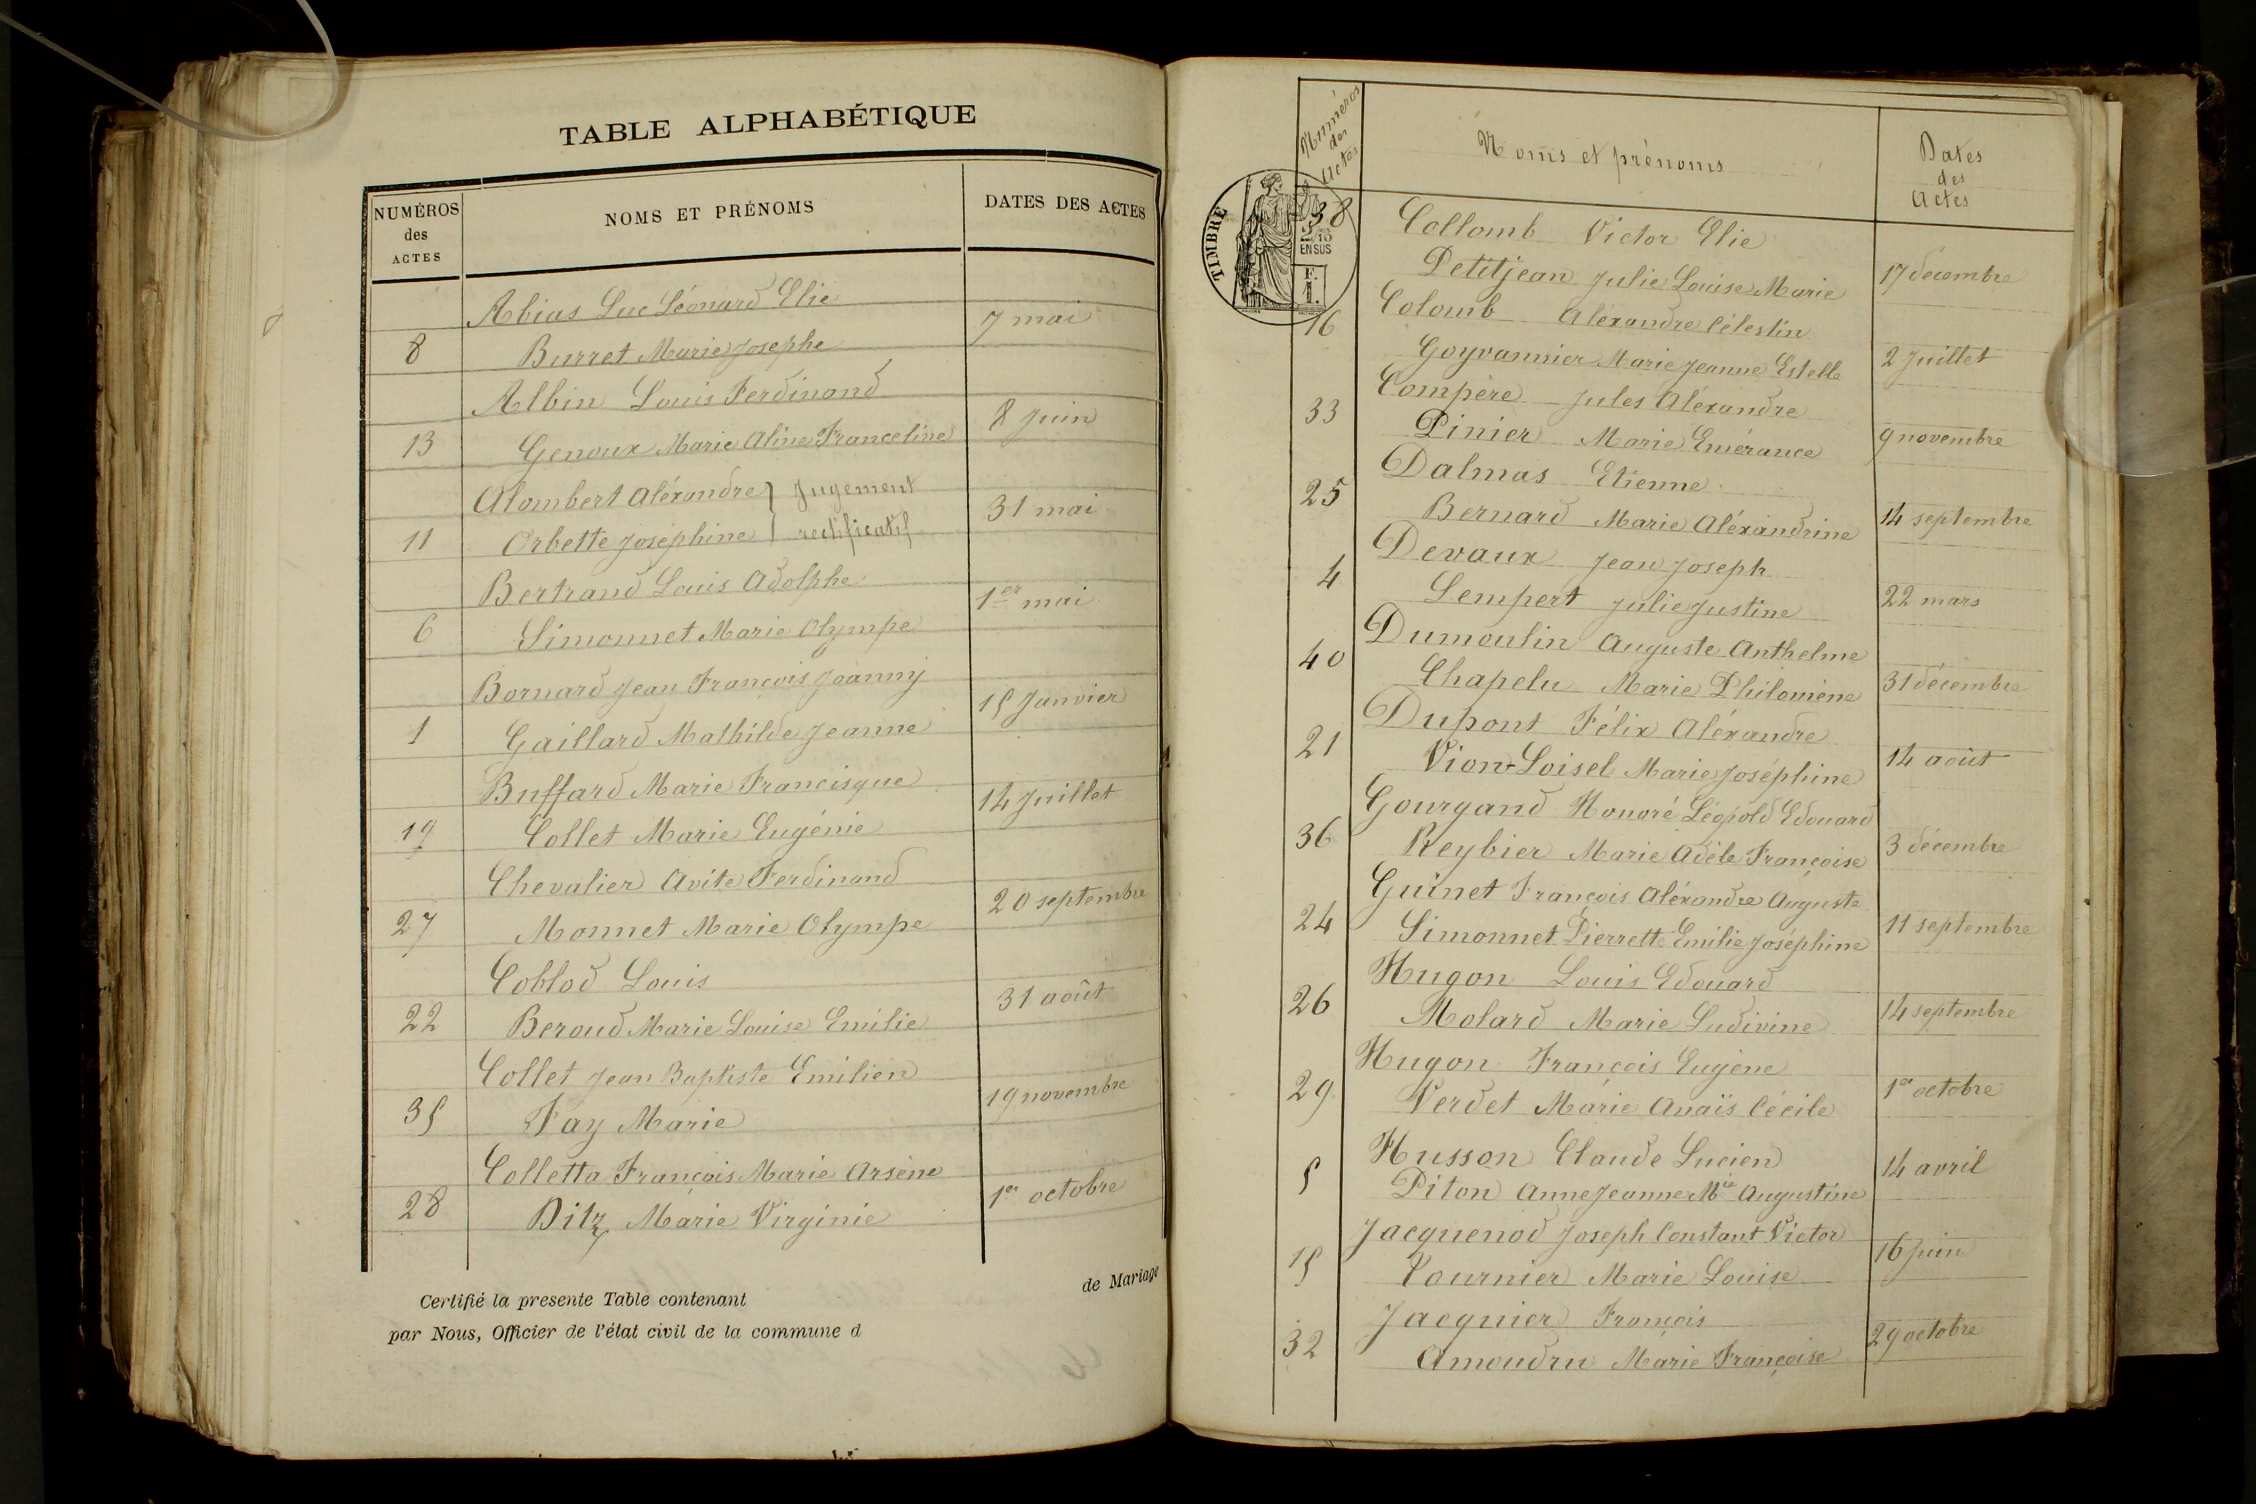 TABLE ALPHABÉTIQUE
NUMÉROS des ACTES NOMS ET PRÉNOMS DATES DES ACTES
Abias Luc Léonard Elie
8 Burret Marie Josephe 7 mai
Albin Louis Ferdinand
13 Genoux Marie Aline Franceline 8 Juin
Alombert Aléxandre } Jugement
11 Orbette Joséphine } rectificatif 31 mai
Bertrand Louis Adolphe
6 Simonnet Marie Olympe 1er mai
Bornard Jean François Joanny
1 Gaillard Mathilde Jeanne 15 Janvier
Buffard Marie Francisque
19 Collet Marie Eugénie 14 Juillet
Chevalier Avite Ferdinand
27 Monnet Marie Olympe 20 septembre
Coblod Louis
22 Beroud Marie Louise Emilie 31 août
Collet Jean Baptiste Emilien
35 Fay Marie 19 novembre
Colletta François Marie Arsène
28 Ditz Marie Virginie 1er octobre
Certifié la presente Table contenant de Mariage
par Nous, Officier de l'état civil de la commune d
Numéros des Actes Noms et prénoms Dates des Actes
TIMBRE
2/10
EN SUS
38 Collomb Victor Elie
Petitjean Julie Louise Marie 17 décembre
16 Colomb Aléxandre Célestin
Goyvannier Marie Jeanne Estelle 2 Juillet
33 Compère Jules Aléxandre
Pinier Marie Emérance 9 novembre
25 Dalmas Etienne
Bernard Marie Aléxandrine 14 septembre
4 Devaux Jean Joseph
Lempert Julie Justine 22 mars
40 Dumoulin Auguste Anthelme
Chapelu Marie Philomène 31 décembre
21 Dupont Félix Aléxandre
Vion-Loisel Marie Joséphine 14 août
Gourgand Honoré Léopold Edouard
36 Reybier Marie Adèle Françoise 3 décembre
Guinet François Aléxandre Auguste
24 Simonnet Pierrette Emilie Joséphine 11 septembre
Hugon Louis Edouard
26 Molard Marie Ludivine 14 septembre
Hugon François Eugène
29 Verdet Marie Anaïs Cécile 1er octobre
Husson Claude Lucien
5 Piton Anne Jeanne Mie Augustine 14 avril
Jacquenod Joseph Constant Victor
15 Tournier Marie Louise 16 Juin
Jacquier François
32 Amoudru Marie Françoise 29 octobre